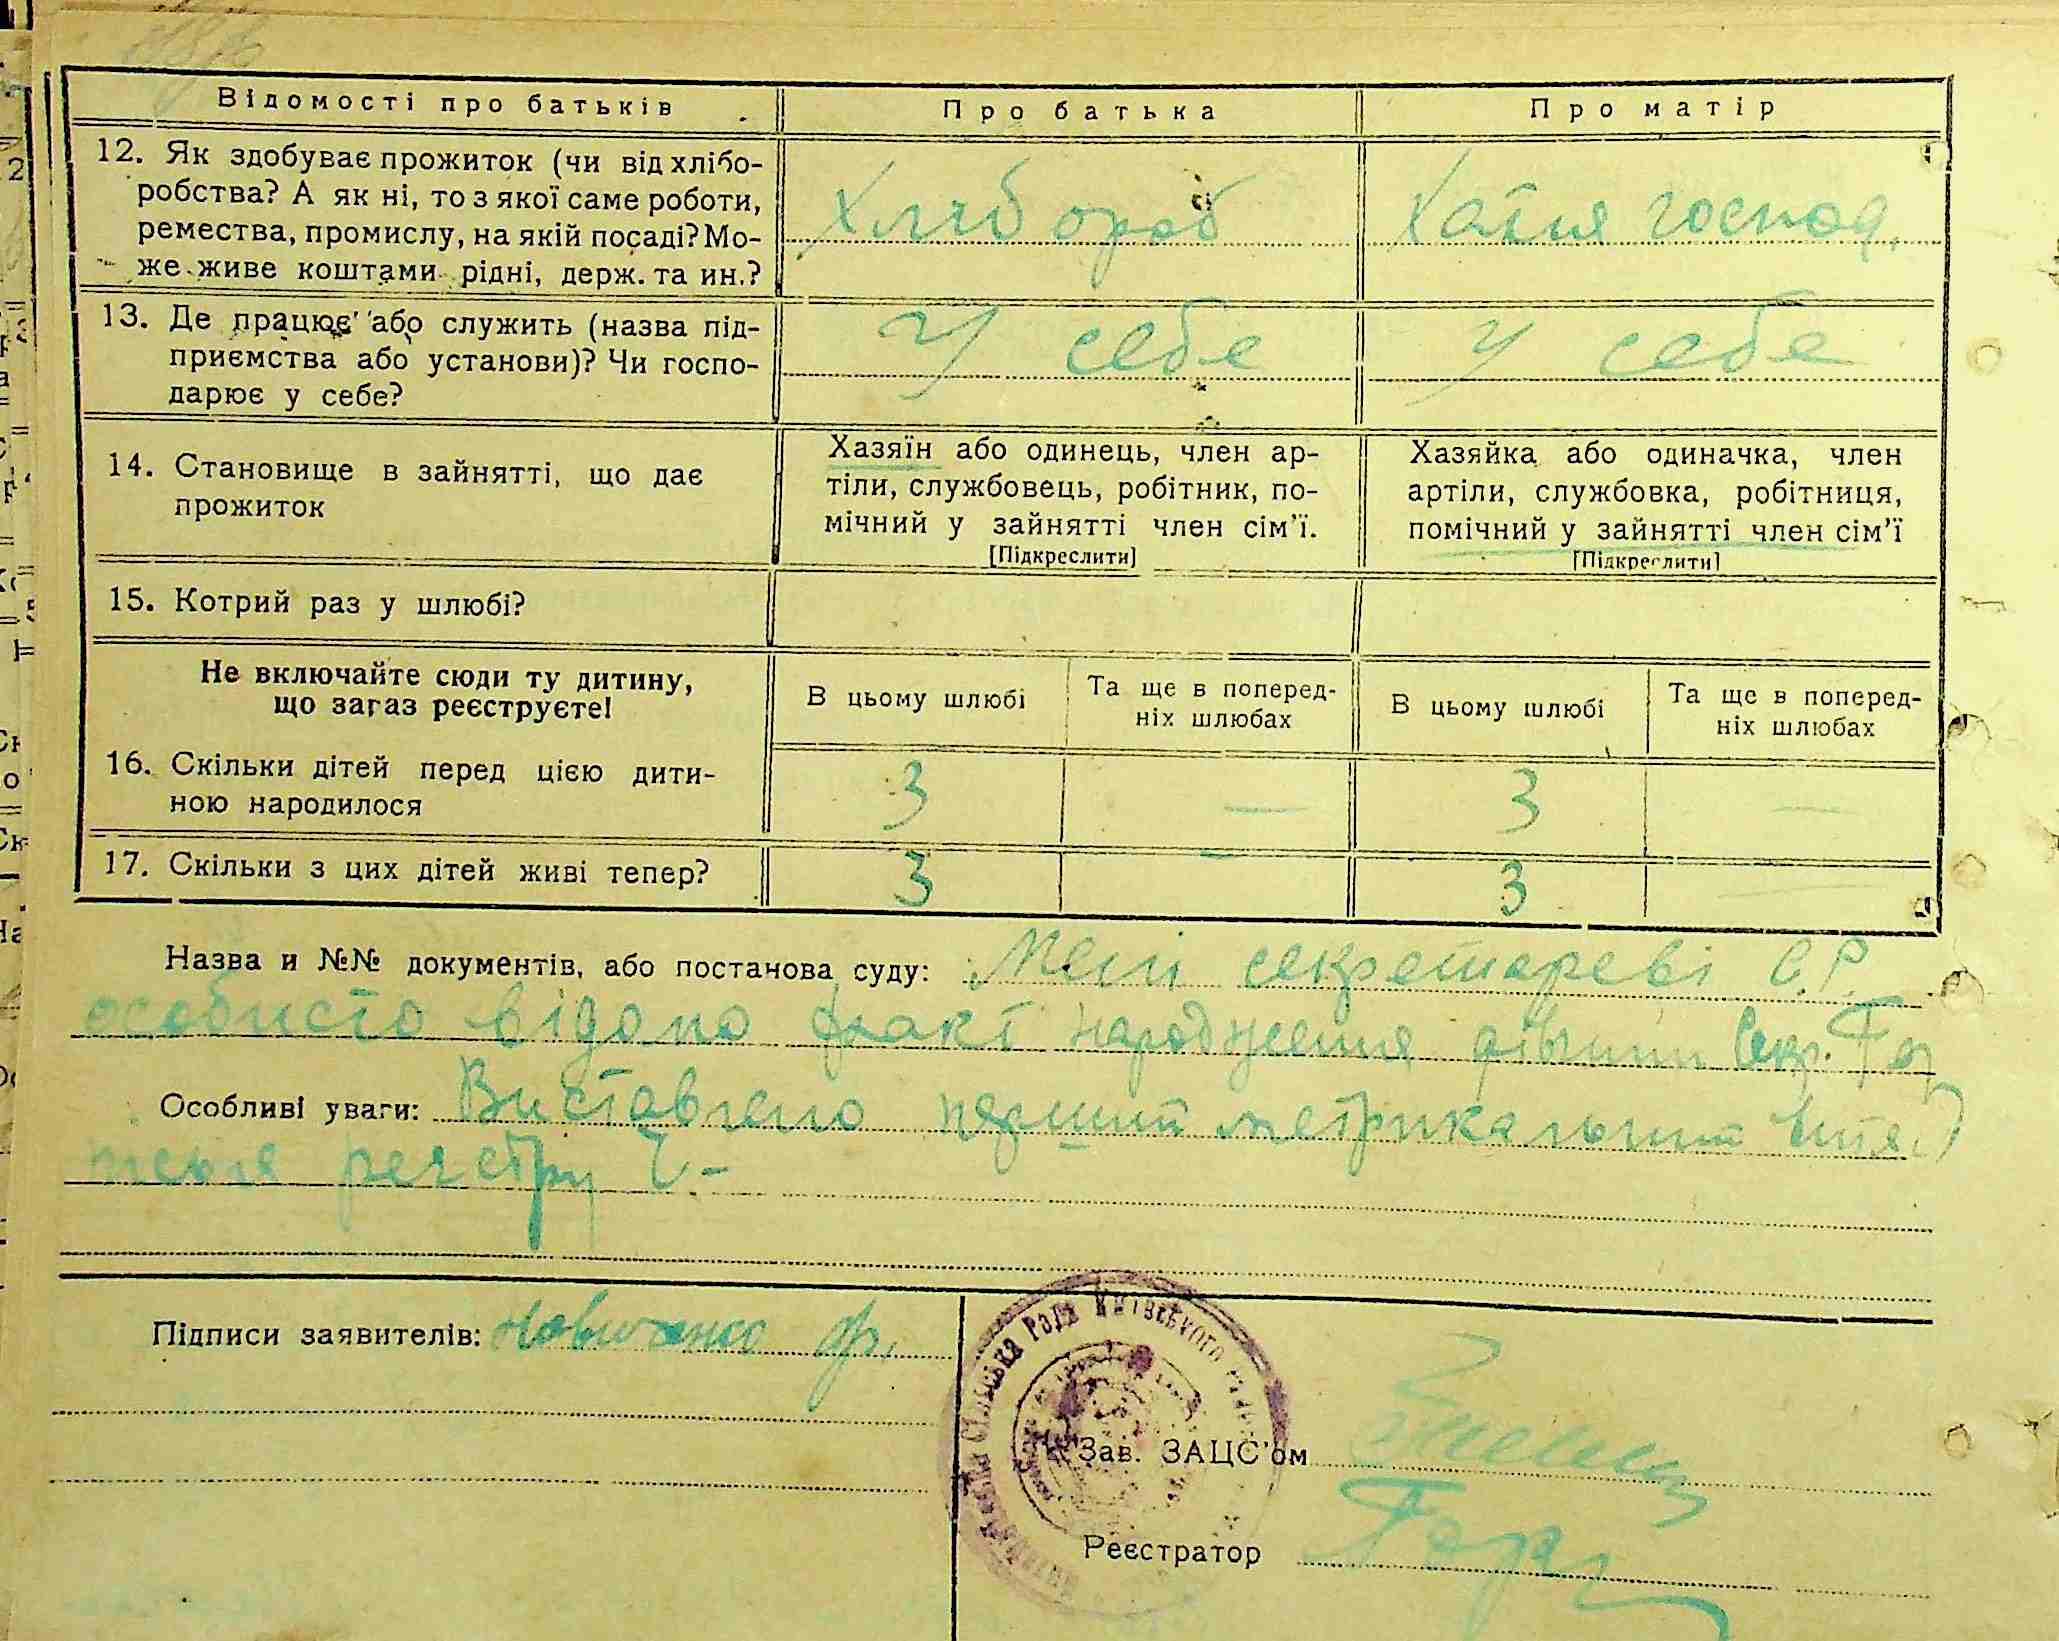 Відомості про батьків Про батька Про матір
12. Як здобуває прожиток (чи від хлібо-
робства? А як ні, то з якої саме роботи,
ремества, промислу, на якій посаді? Мо-
же живе коштами рідні, держ. та ин.?
Хлиб ороб
Хатня господ.
13. Де працює або служить (назва під-
приємства або установи)? Чи госпо-
дарює у себе?
У себе
У себе
14. Становище в зайнятті, що дає
прожиток
Хазяїн або одинець, член ар-
тіли, службовець, робітник, по-
мічний у зайнятті член сім'ї.
[Підкреслити]
Хазяйка або одиначка, член
артіли, службовка, робітниця,
помічний у зайнятті член сім'ї
[Підкреслити]
15. Котрий раз у шлюбі?
Не включайте сюди ту дитину,
що загаз реєструєте!
В цьому шлюбі
Та ще в поперед-
ніх шлюбах
В цьому шлюбі
Та ще в поперед-
ніх шлюбах
16. Скільки дітей перед цією дити-
ною народилося
3 — 3 —
17. Скільки з цих дітей живі тепер?
3 — 3 —
Назва и №№ документів, або постанова суду: Мені секретареві С.Р.
особисто відомо факт народження дівчини Секр.
Особливі уваги: Виставлено перший метрикальний витяг
після реєстру
Підписи заявителів: Новиченко Ф.
Сільська Рада Київського
Зав. ЗАЦС'ом
Реєстратор